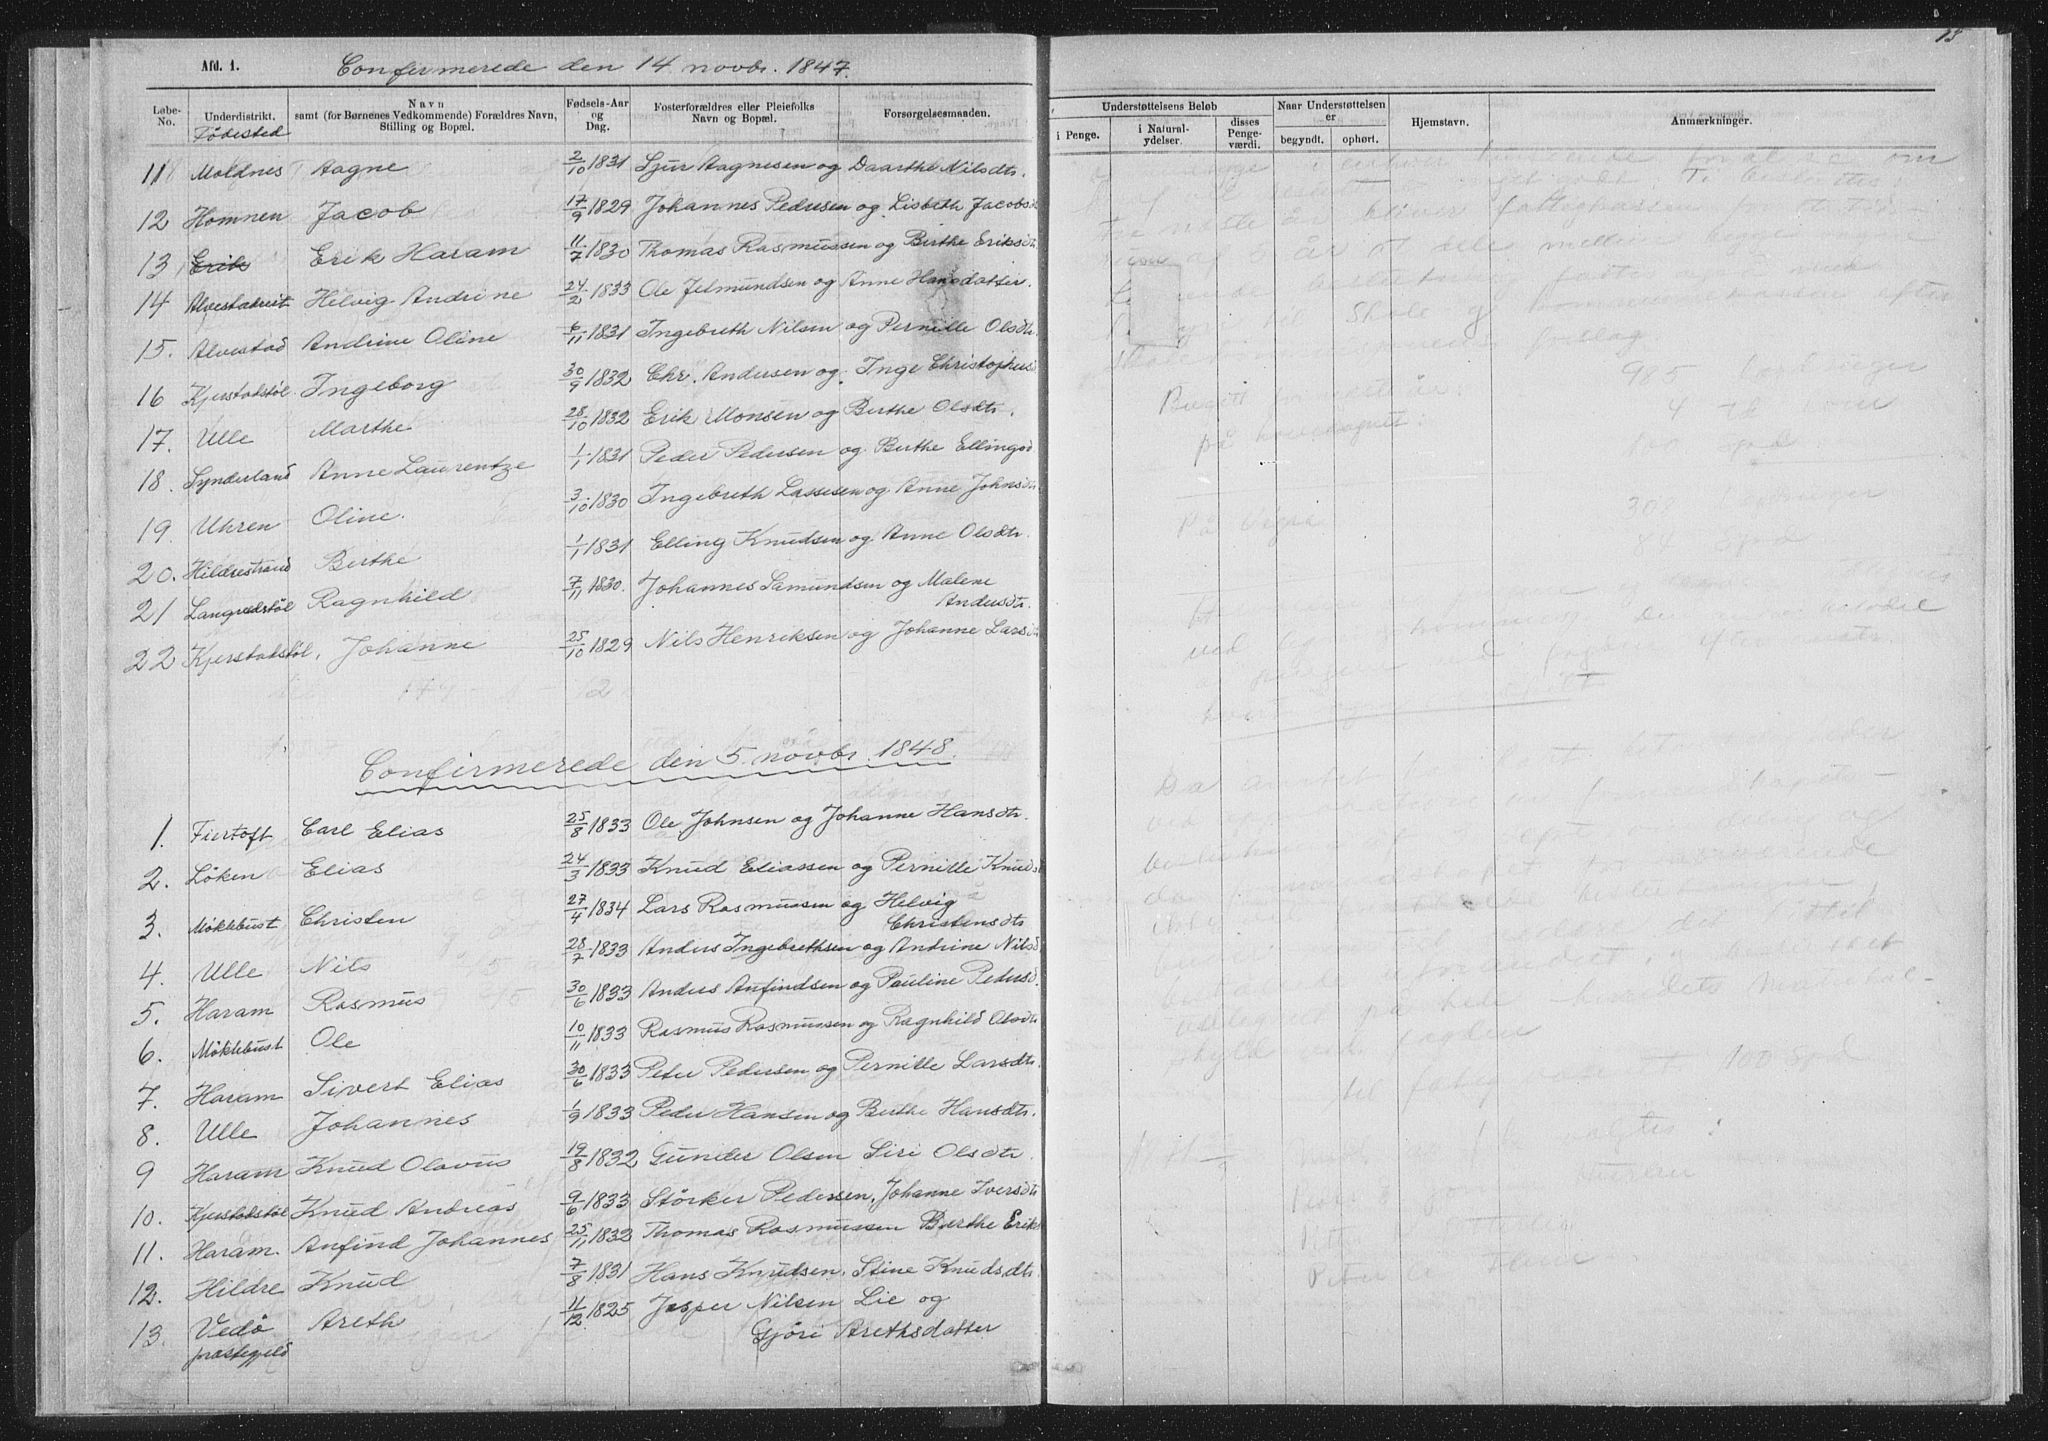 15
Afd. 1. Confirmerede den 14 novbr. 1847.
Løbe-No. Underdistrikt. Navn samt (for Børnenes Vedkommende) Forældres Navn, Stilling og Bopæl. Fødsels-Aar og Dag. Fosterforældres eller Pleiefolks Navn og Bopæl. Forsørgelsesmaaden.
Fødested
Understøttelsens Beløb Naar Understøttelsen er Hjemstavn. Anmærkninger.
i Penge. i Natural-ydelser. disses Penge-værdi. begyndt. ophørt.
11 Moldnes Aagne 2/10 1831 Sjur Aagnesen og Daarthe Nilsdtr.
12 Homnen Jacob 17/9 1829 Johannes Pedersen og Lisbeth Jacobsd
13 Erik Erik Haram 11/7 1830 Thomas Rasmussen og Birthe Eriksdtr
14 Alvestakvit Helvig Andrine 24/2 1833 Ole Jetmundsen og Anne Hansdatter.
15. Alvestad Andrine Oline 6/11 1831 Ingebreth Nilsen og Pernille Olsdtr.
16 Kjerstadstøl Ingeborg 30/9 1832 Chr. Andersen og Inge Christophersd
17. Ulle Marthe 28/10 1832 Erik Monsen og Birthe Olsdtr.
18. Synderland Anne Laurentze 1/1 1831 Peder Pedersen og Berthe Ellingsd
19. Uhren Oline. 3/10 1830 Ingebreth Lassesen og Anne Johnsdtr
20. Hildrestrand Berthe 1/1 1831 Elling Knudsen og Anne Olsdtr.
21 Langvedstøl Ragnhild 7/11 1830. Johannes Samundsen og Malene
Andersdtr.
22 Kjerstadstøl. Johanne 25/10 1829 Nils Henriksen og Johanne Larsdtr
Confirmerede den 5. novbr. 1848.
1. Fiertoft Carl Elias 25/8 1833 Ole Johnsen og Johanne Hansdtr.
2. Løken Elias 24/3 1833 Knud Eliassen og Pernille Knuds
3. Møklebust Christen 27/4 1834 Lars Rasmussen og Helvig
Christensdtr
4. Ulle Nils 28/7 1833 Anders Ingebrethsen og Andrine Nilsd
5. Haram Rasmus 30/6 1833 Anders Anfindsen og Pauline Pedersd.
6. Møklebust Ole 10/11 1833 Rasmus Rasmussen og Ragnhild Olsdtr
7. Haram Sivert Elias 30/6 1833 Peter Pedersen og Pernille Larsdtr
8. Ulle Johannes 1/9 1833 Peder Hansen og Berthe Hansdtr.
9 Haram Knud Olavus 19/8 1832 Gunder Olsen Siri Olsdtr
10. Kjerstadstøl Knud Andreas 9/6 1833 Størker Pedersen, Johanne Iversdtr
11. Haram. Anfind Johannes 25/11 1832 Thomas Rasmussen Berthe Eriks
12. Hildre Knud 7/8 1831 Hans Knudsen. Stine Knudsdtr
13. Vedø Areth 11/12 1825 Jesper Nilsen Lie og
præstegjeld Gjøri Arethsdatter